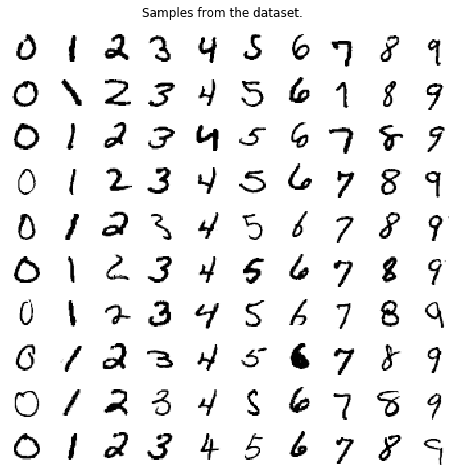 Samples from the dataset.
0 1 2 3 4 5 6 7 8 9
0 1 2 3 4 5 6 7 8 9
0 1 2 3 4 5 6 7 8 9
0 1 2 3 4 5 6 7 8 9
0 1 2 3 4 5 6 7 8 9
0 1 2 3 4 5 6 7 8 9
0 1 2 3 4 5 6 7 8 9
0 1 2 3 4 5 6 7 8 9
0 1 2 3 4 5 6 7 8 9
0 1 2 3 4 5 6 7 8 9